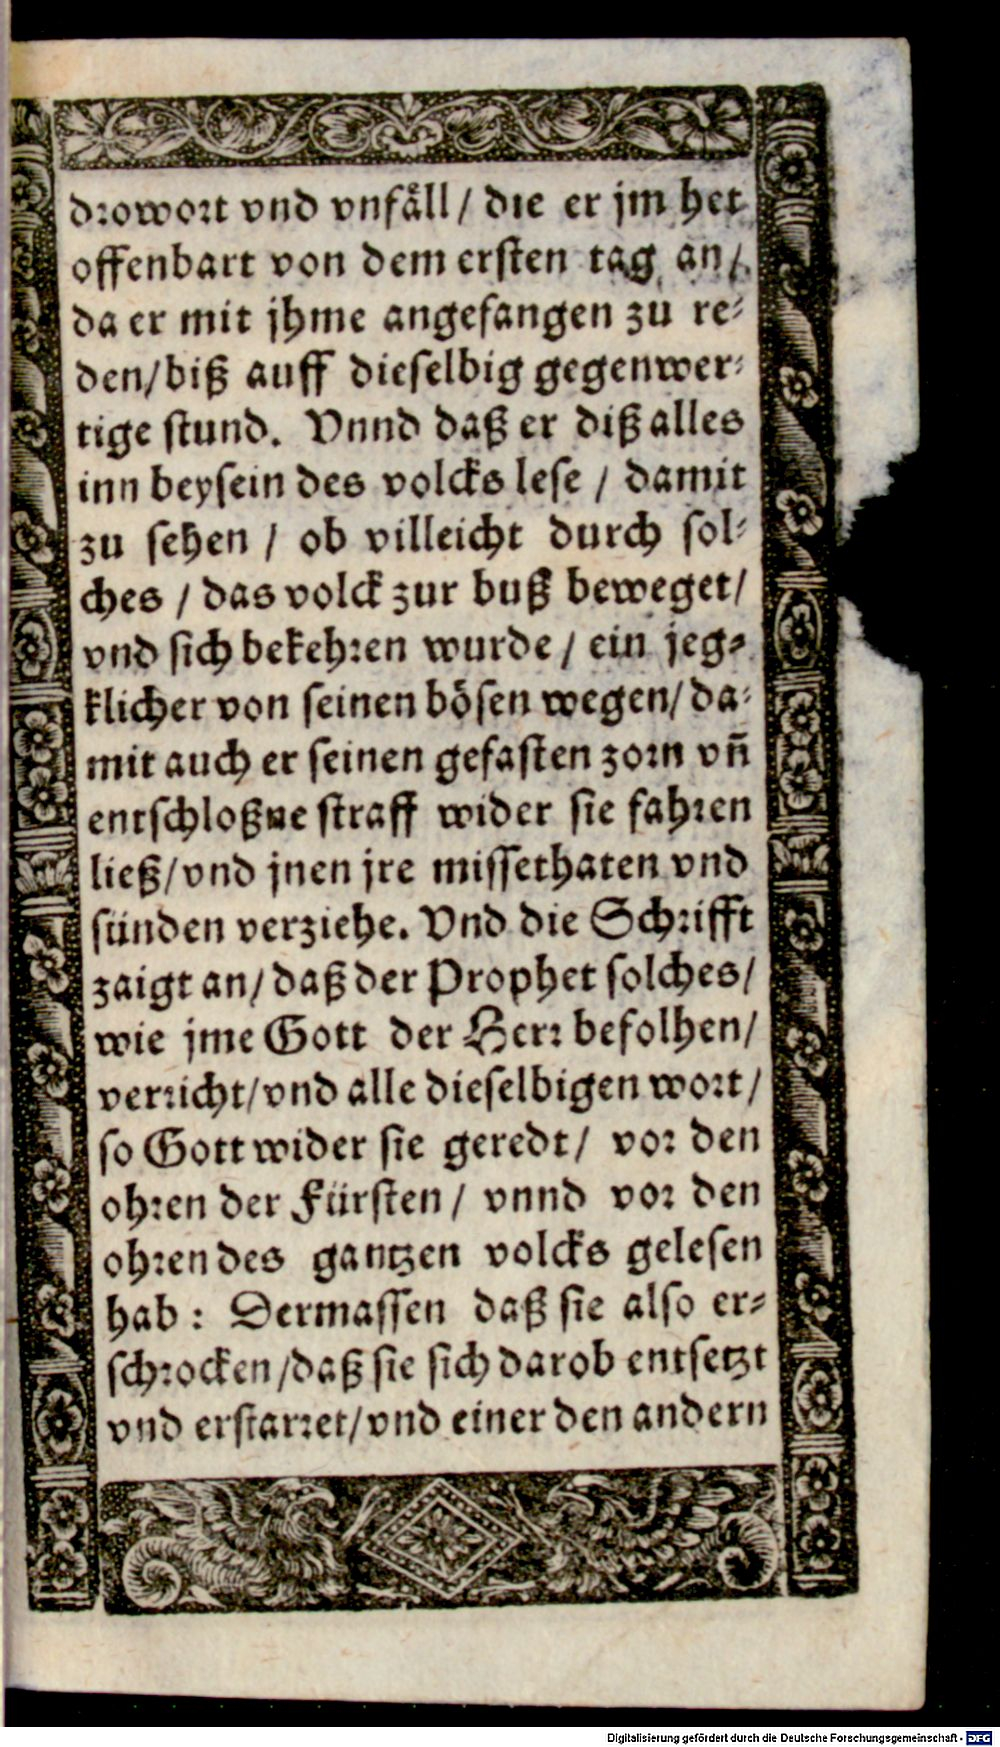 drowort vnd vnfåll / die er jm het
offenbart von dem ersten tag an /
da er mit jhme angefangen zu re⸗
den / biß auff dieselbig gegenwer⸗
tige stund. Vnnd daß er diß alles
inn beysein des volcks lese / damit
zu sehen / ob villeicht durch sol⸗
ches / das volck zur buß beweget /
vnd sich bekehren wurde / ein jeg⸗
klicher von seinen bösen wegen / da⸗
mit auch er seinen gefasten zorn vñ
entschloßne straff wider sie fahren
ließ / vnd jnen jre missethaten vnd
sünden verziehe. Vnd die Schrifft
zaigt an / daß der Prophet solches /
wie jme Gott der Herr befolhen /
verricht / vnd alle dieselbigen wort /
so Gott wider sie geredt / vor den
ohren der Fürsten / vnnd vor den
ohren des gantzen volcks gelesen
hab : Dermassen daß sie also er⸗
schrocken / daß sie sich darob entsetzt
vnd erstarret / vnd einer den andern
Digitalisierung gefördert durch die Deutsche Forschungsgemeinschaft - DFG